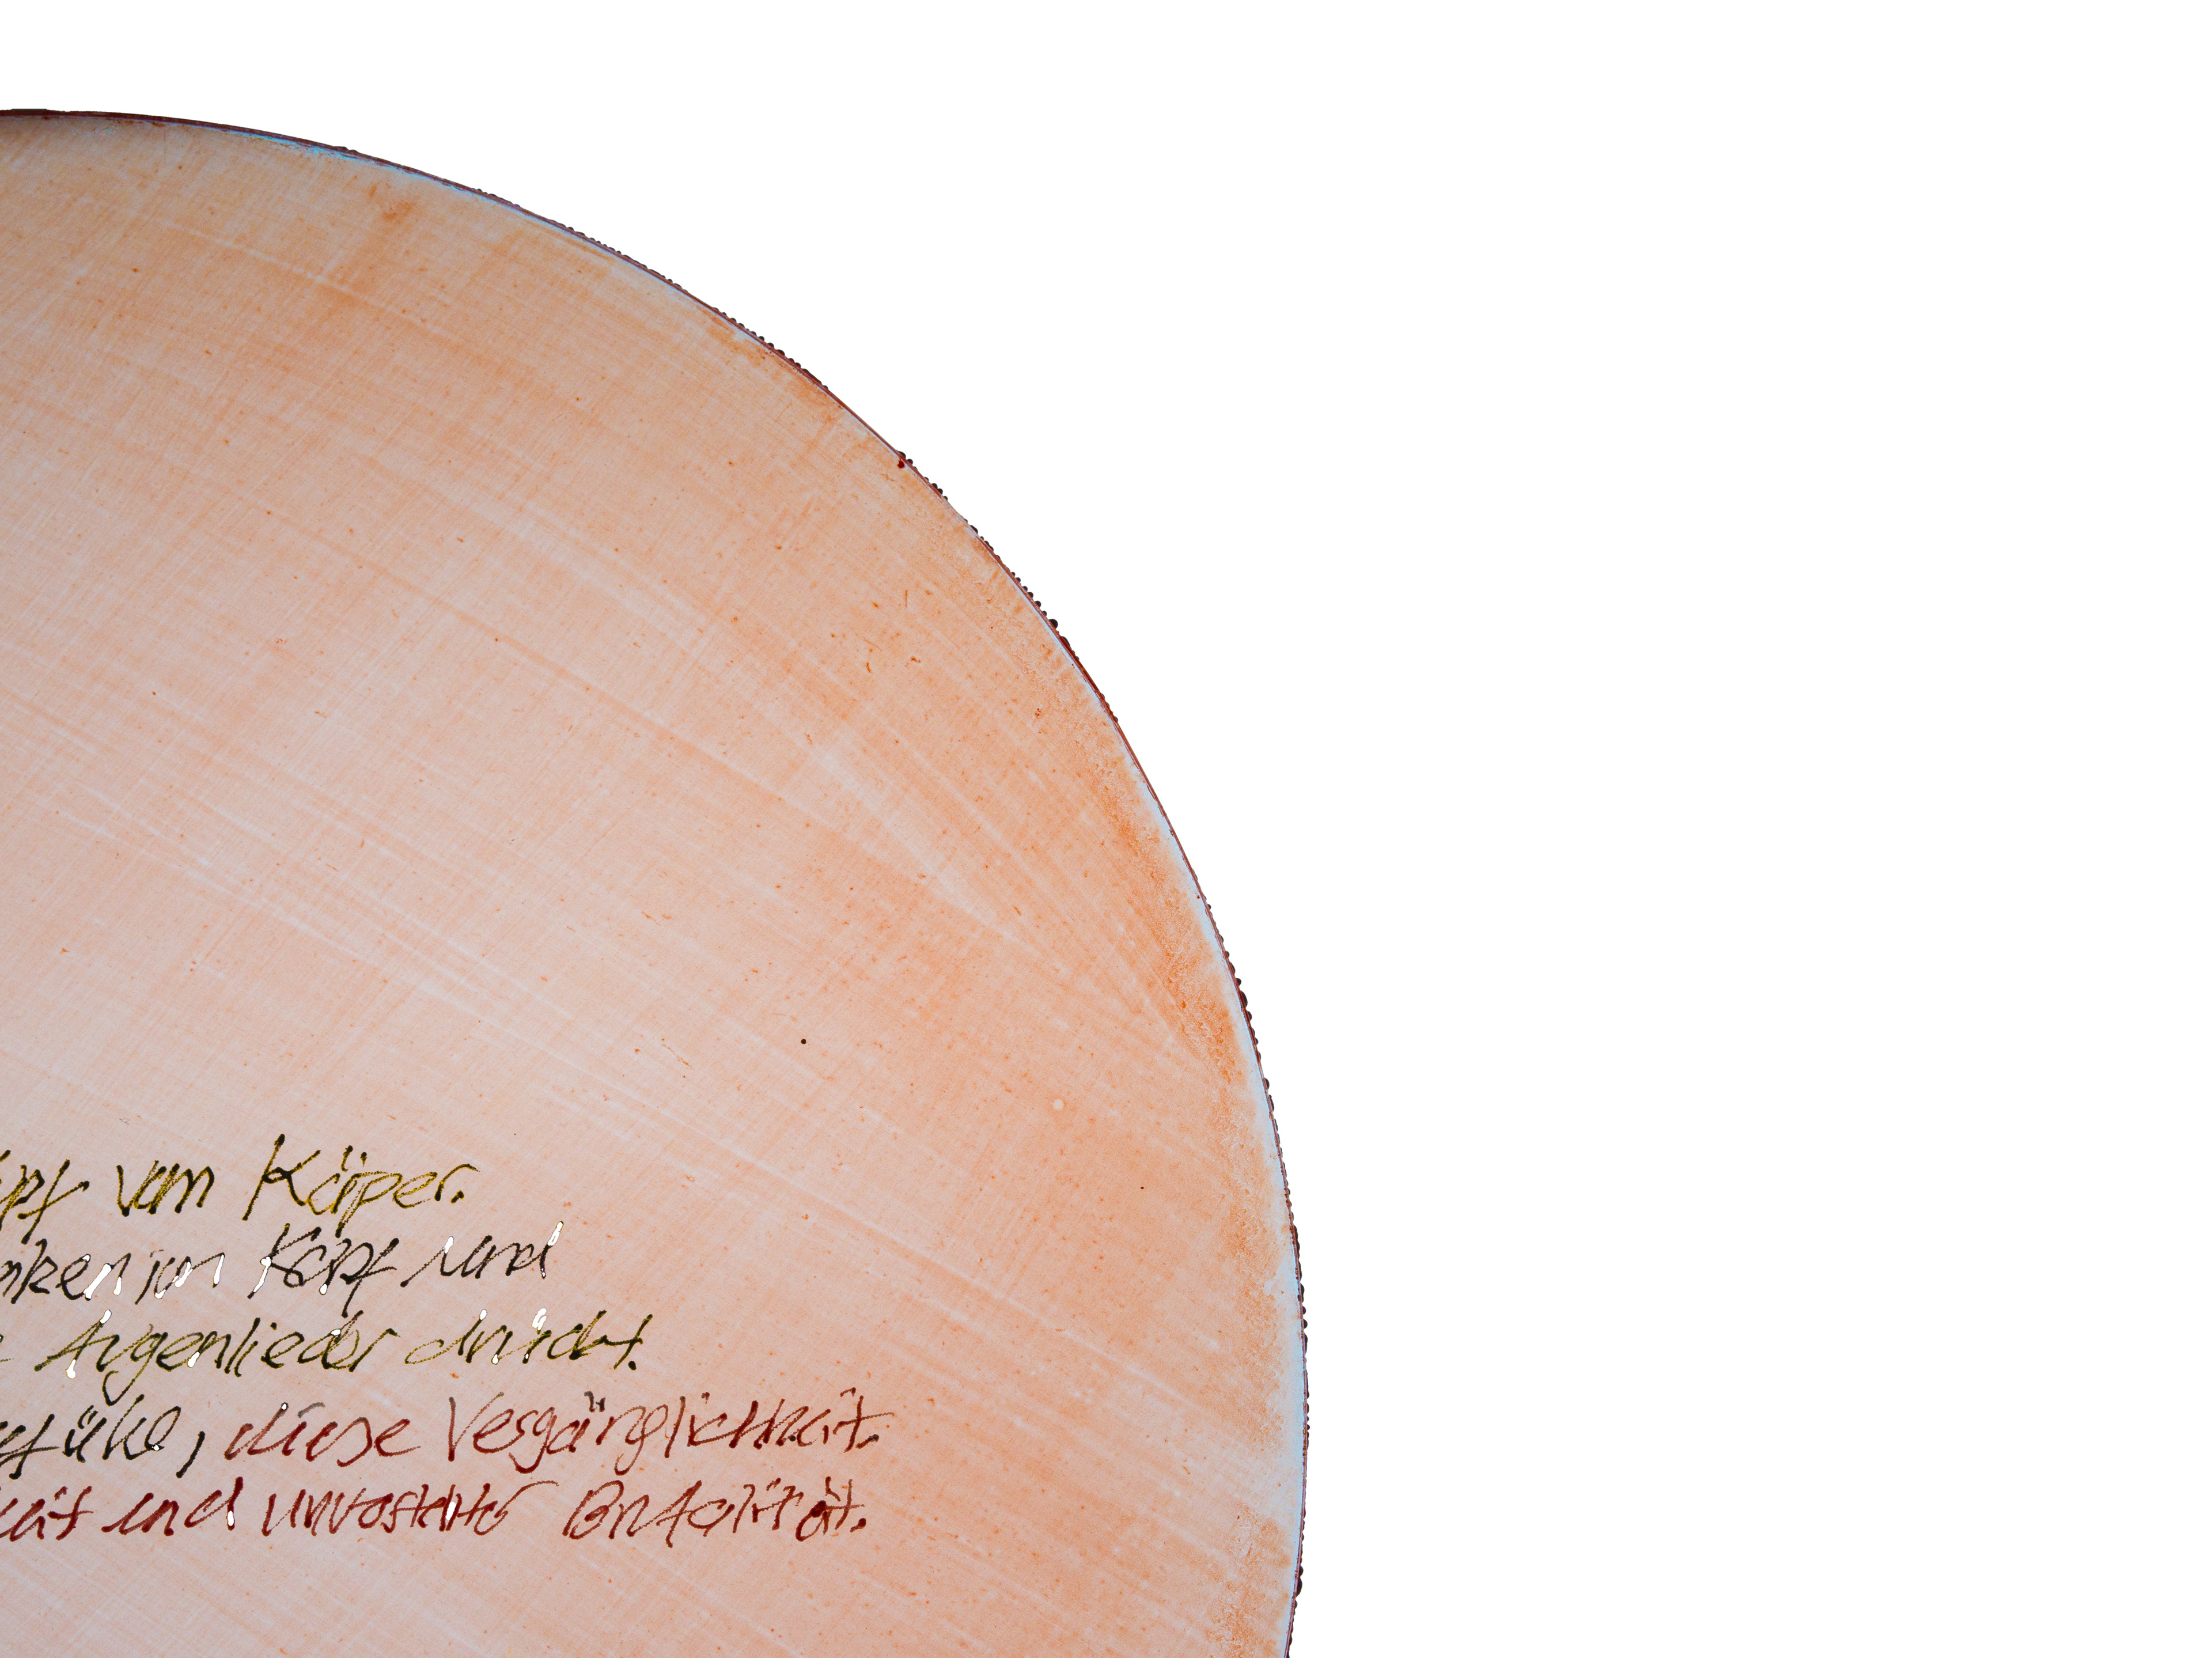 opf vom Körper.
nken im Kopf und
Augenlieder drückt.
efühl, diese Vergänglichkeit.
keit und unverstellte Brutalität.